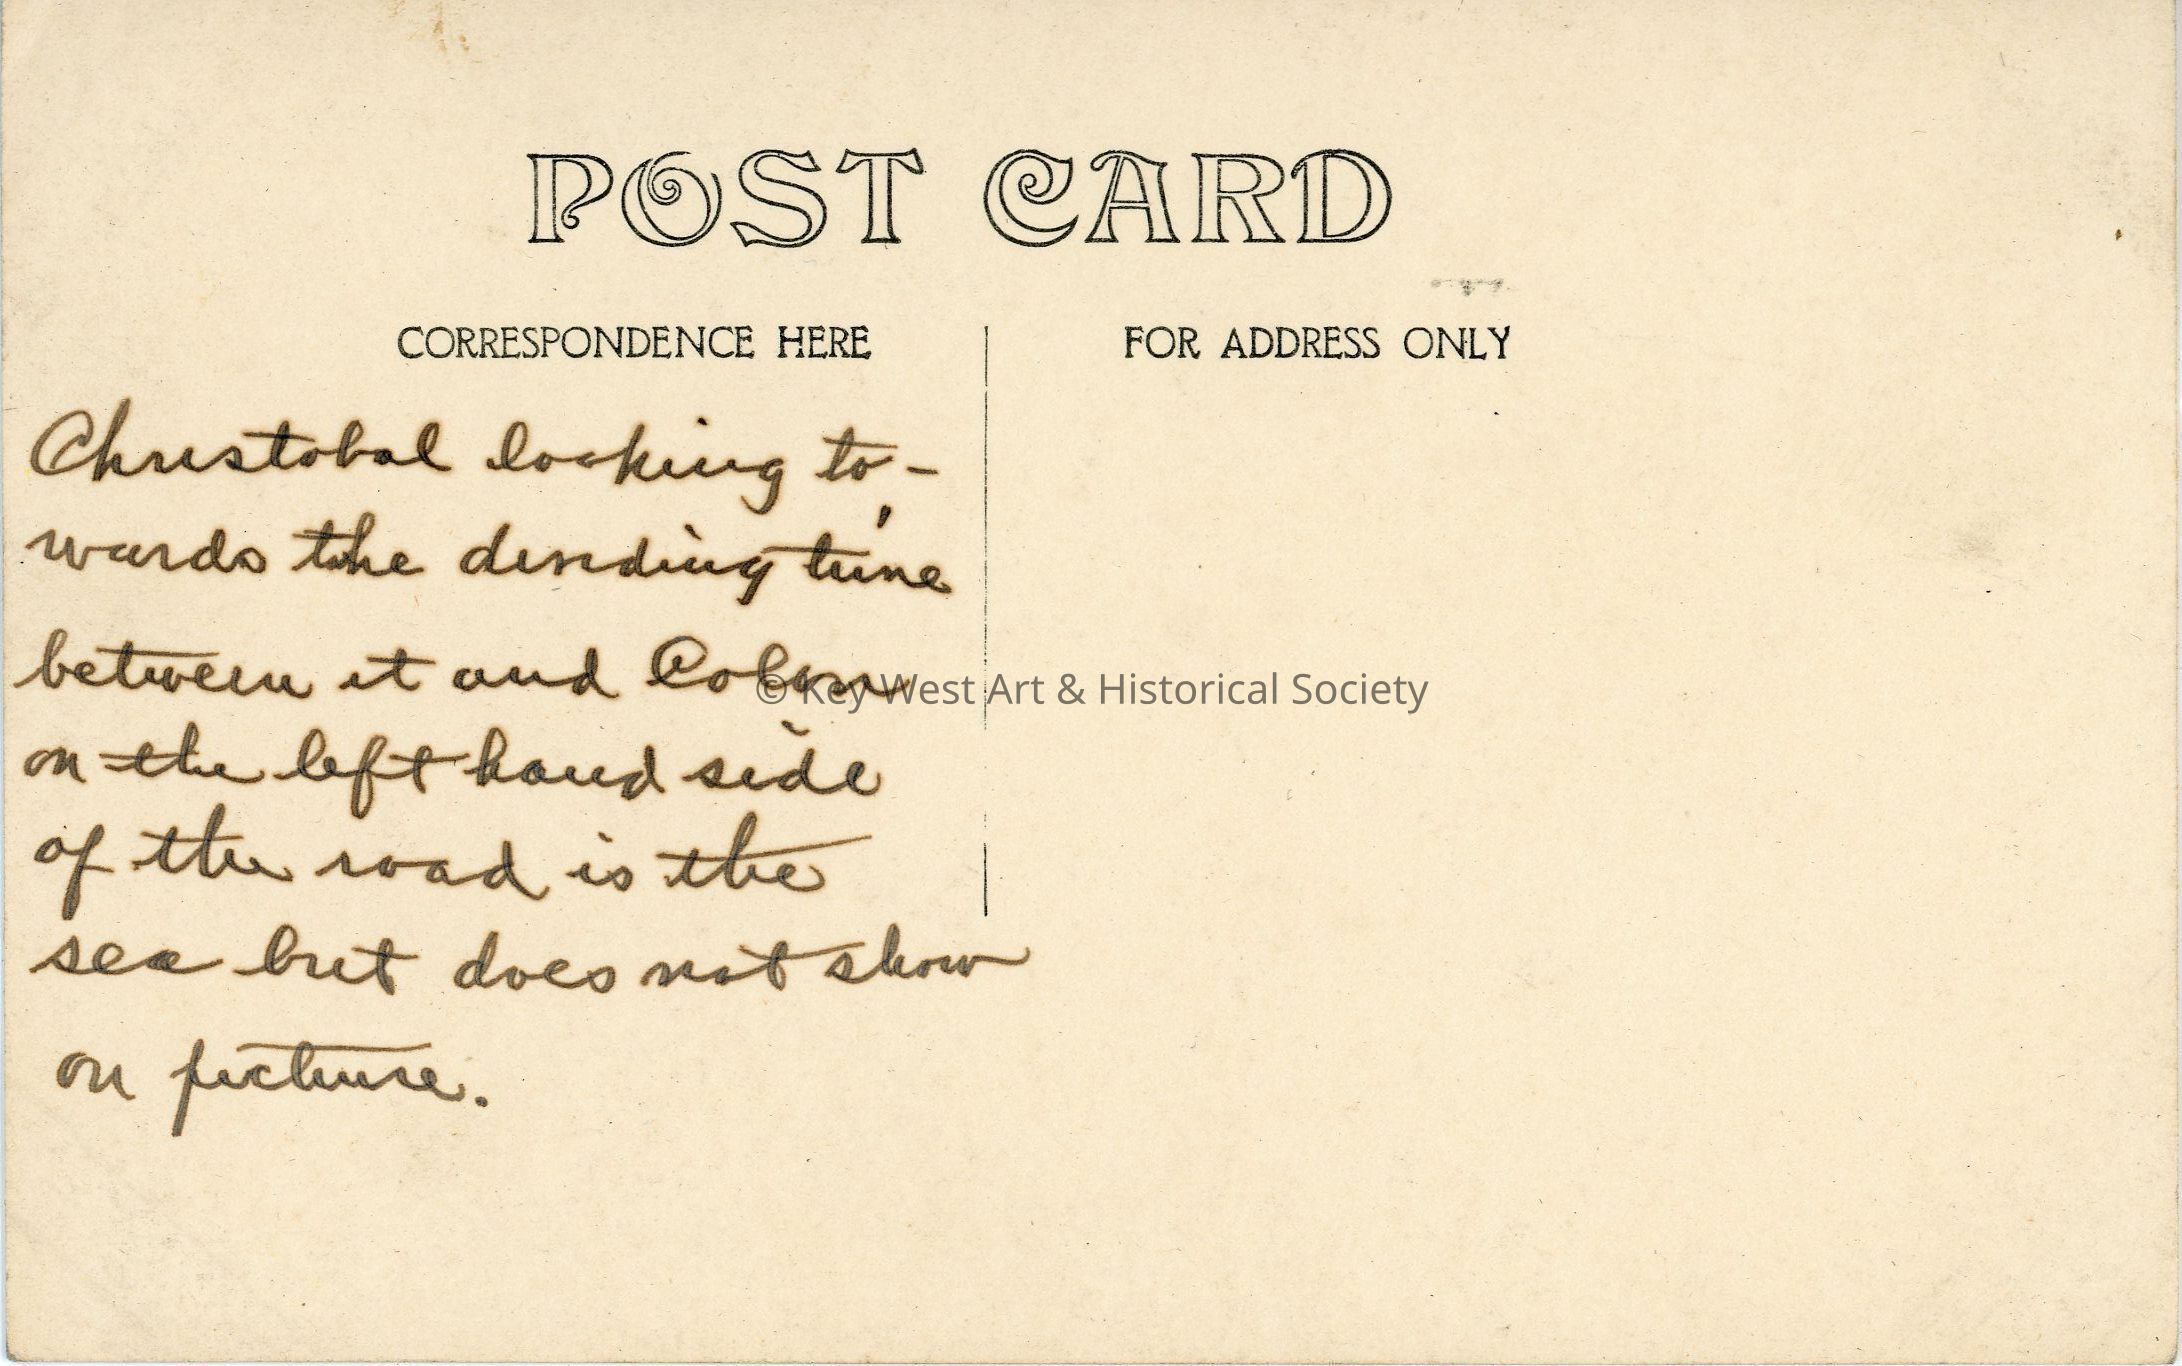 POST CARD
CORRESPONDENCE HERE
FOR ADDRESS ONLY
Christobal looking to-
wards the dividing line
between it and Colon
on the left hand side
of the road is the
sea but does not show
on picture.
© Key West Art & Historical Society